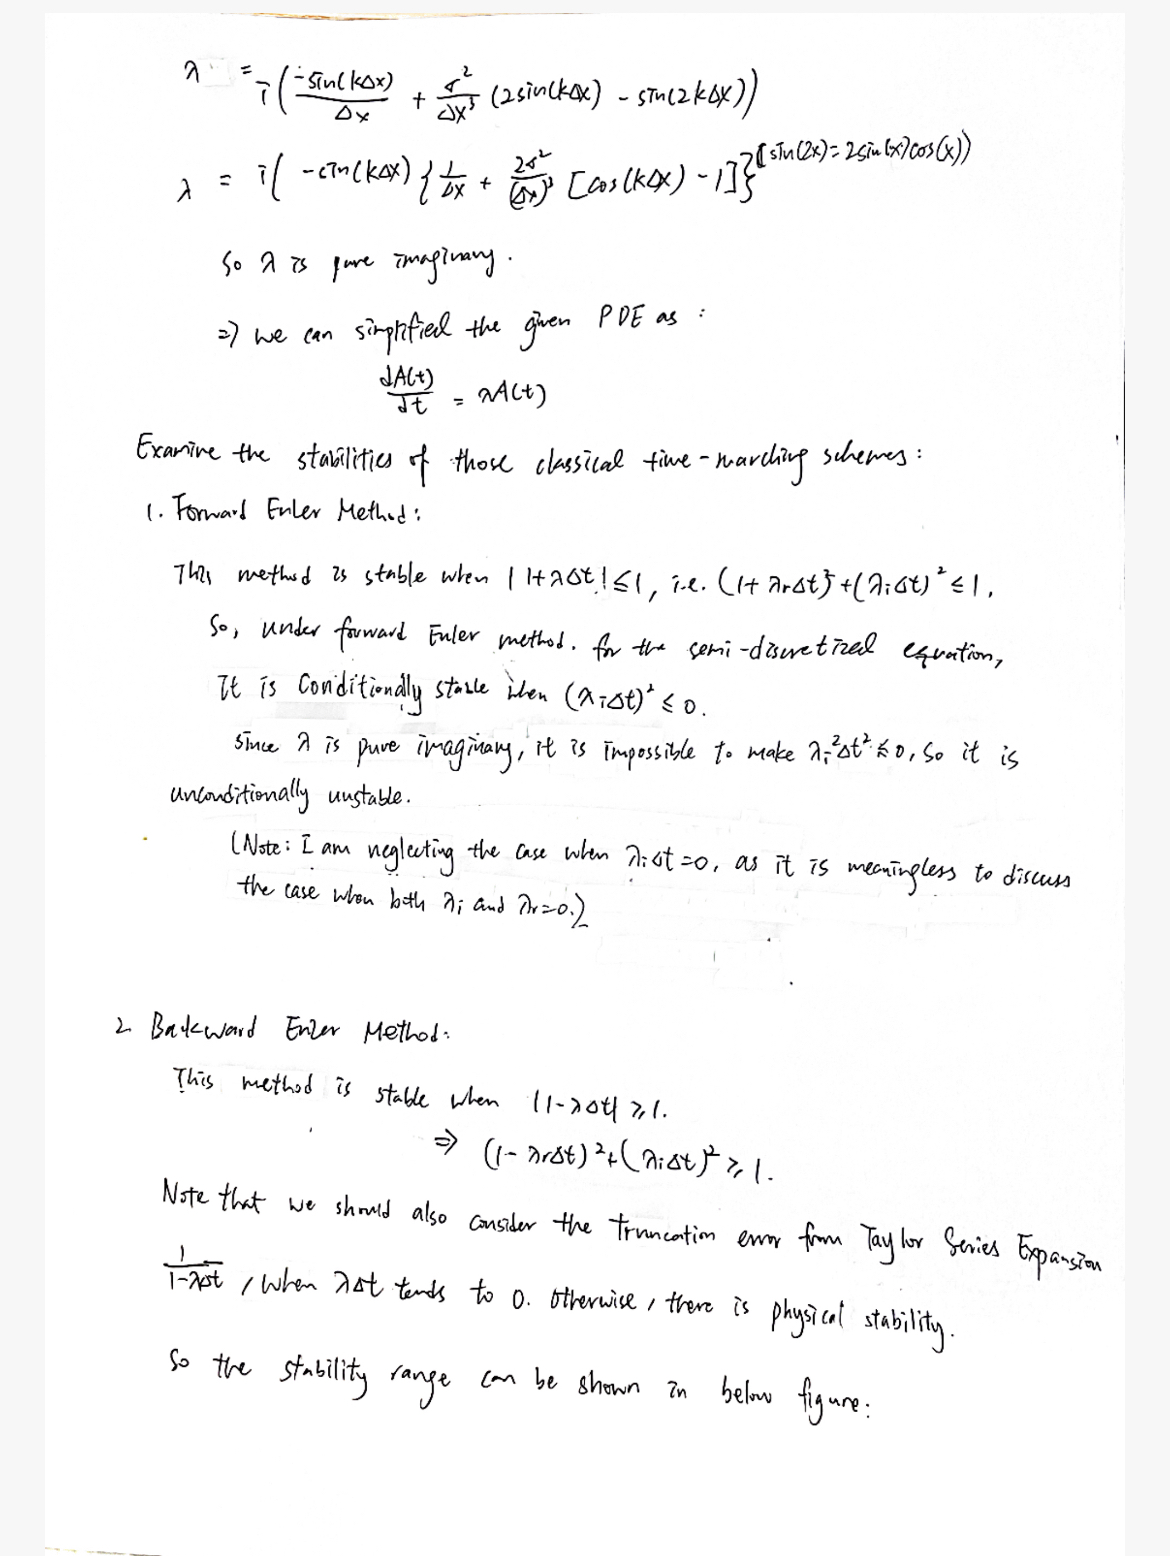 λ = i( -sin(kΔx)/Δx + δ²/Δx³ (2sin(kΔx) - sin(2kΔx)))
λ = i( -sin(kΔx) { 1/Δx + 2δ²/(Δx)³ [cos(kΔx) - 1]} [sin(2x) = 2sin(x)cos(x)))
So λ is pure imaginary.
=) we can simplified the given PDE as :
dA(t)/dt = λA(t)
Examine the stabilities of those classical time-marching schemes :
1. Forward Euler Method :
This method is stable when |1+λΔt| ≤ 1, i.e. (1+λrΔt)² + (λiΔt)² ≤ 1.
So, under forward Euler method. for the semi-discretized equation,
It is Conditionally stable when (λiΔt)² ≤ 0.
since λ is pure imaginary, it is impossible to make λi²Δt² ≤ 0, so it is
unconditionally unstable.
(Note: I am neglecting the case when λiΔt = 0, as it is meaningless to discuss
the case when both λi and λr=0.)
2 Backward Euler Method:
This method is stable when |1-λΔt| ≥ 1.
⇒ (1-λrΔt)² + (λiΔt)² ≥ 1.
Note that we should also consider the truncation error from Taylor Series Expansion
1/(1-λΔt), when λΔt tends to 0. Otherwise, there is physical stability.
So the stability range can be shown in below figure: